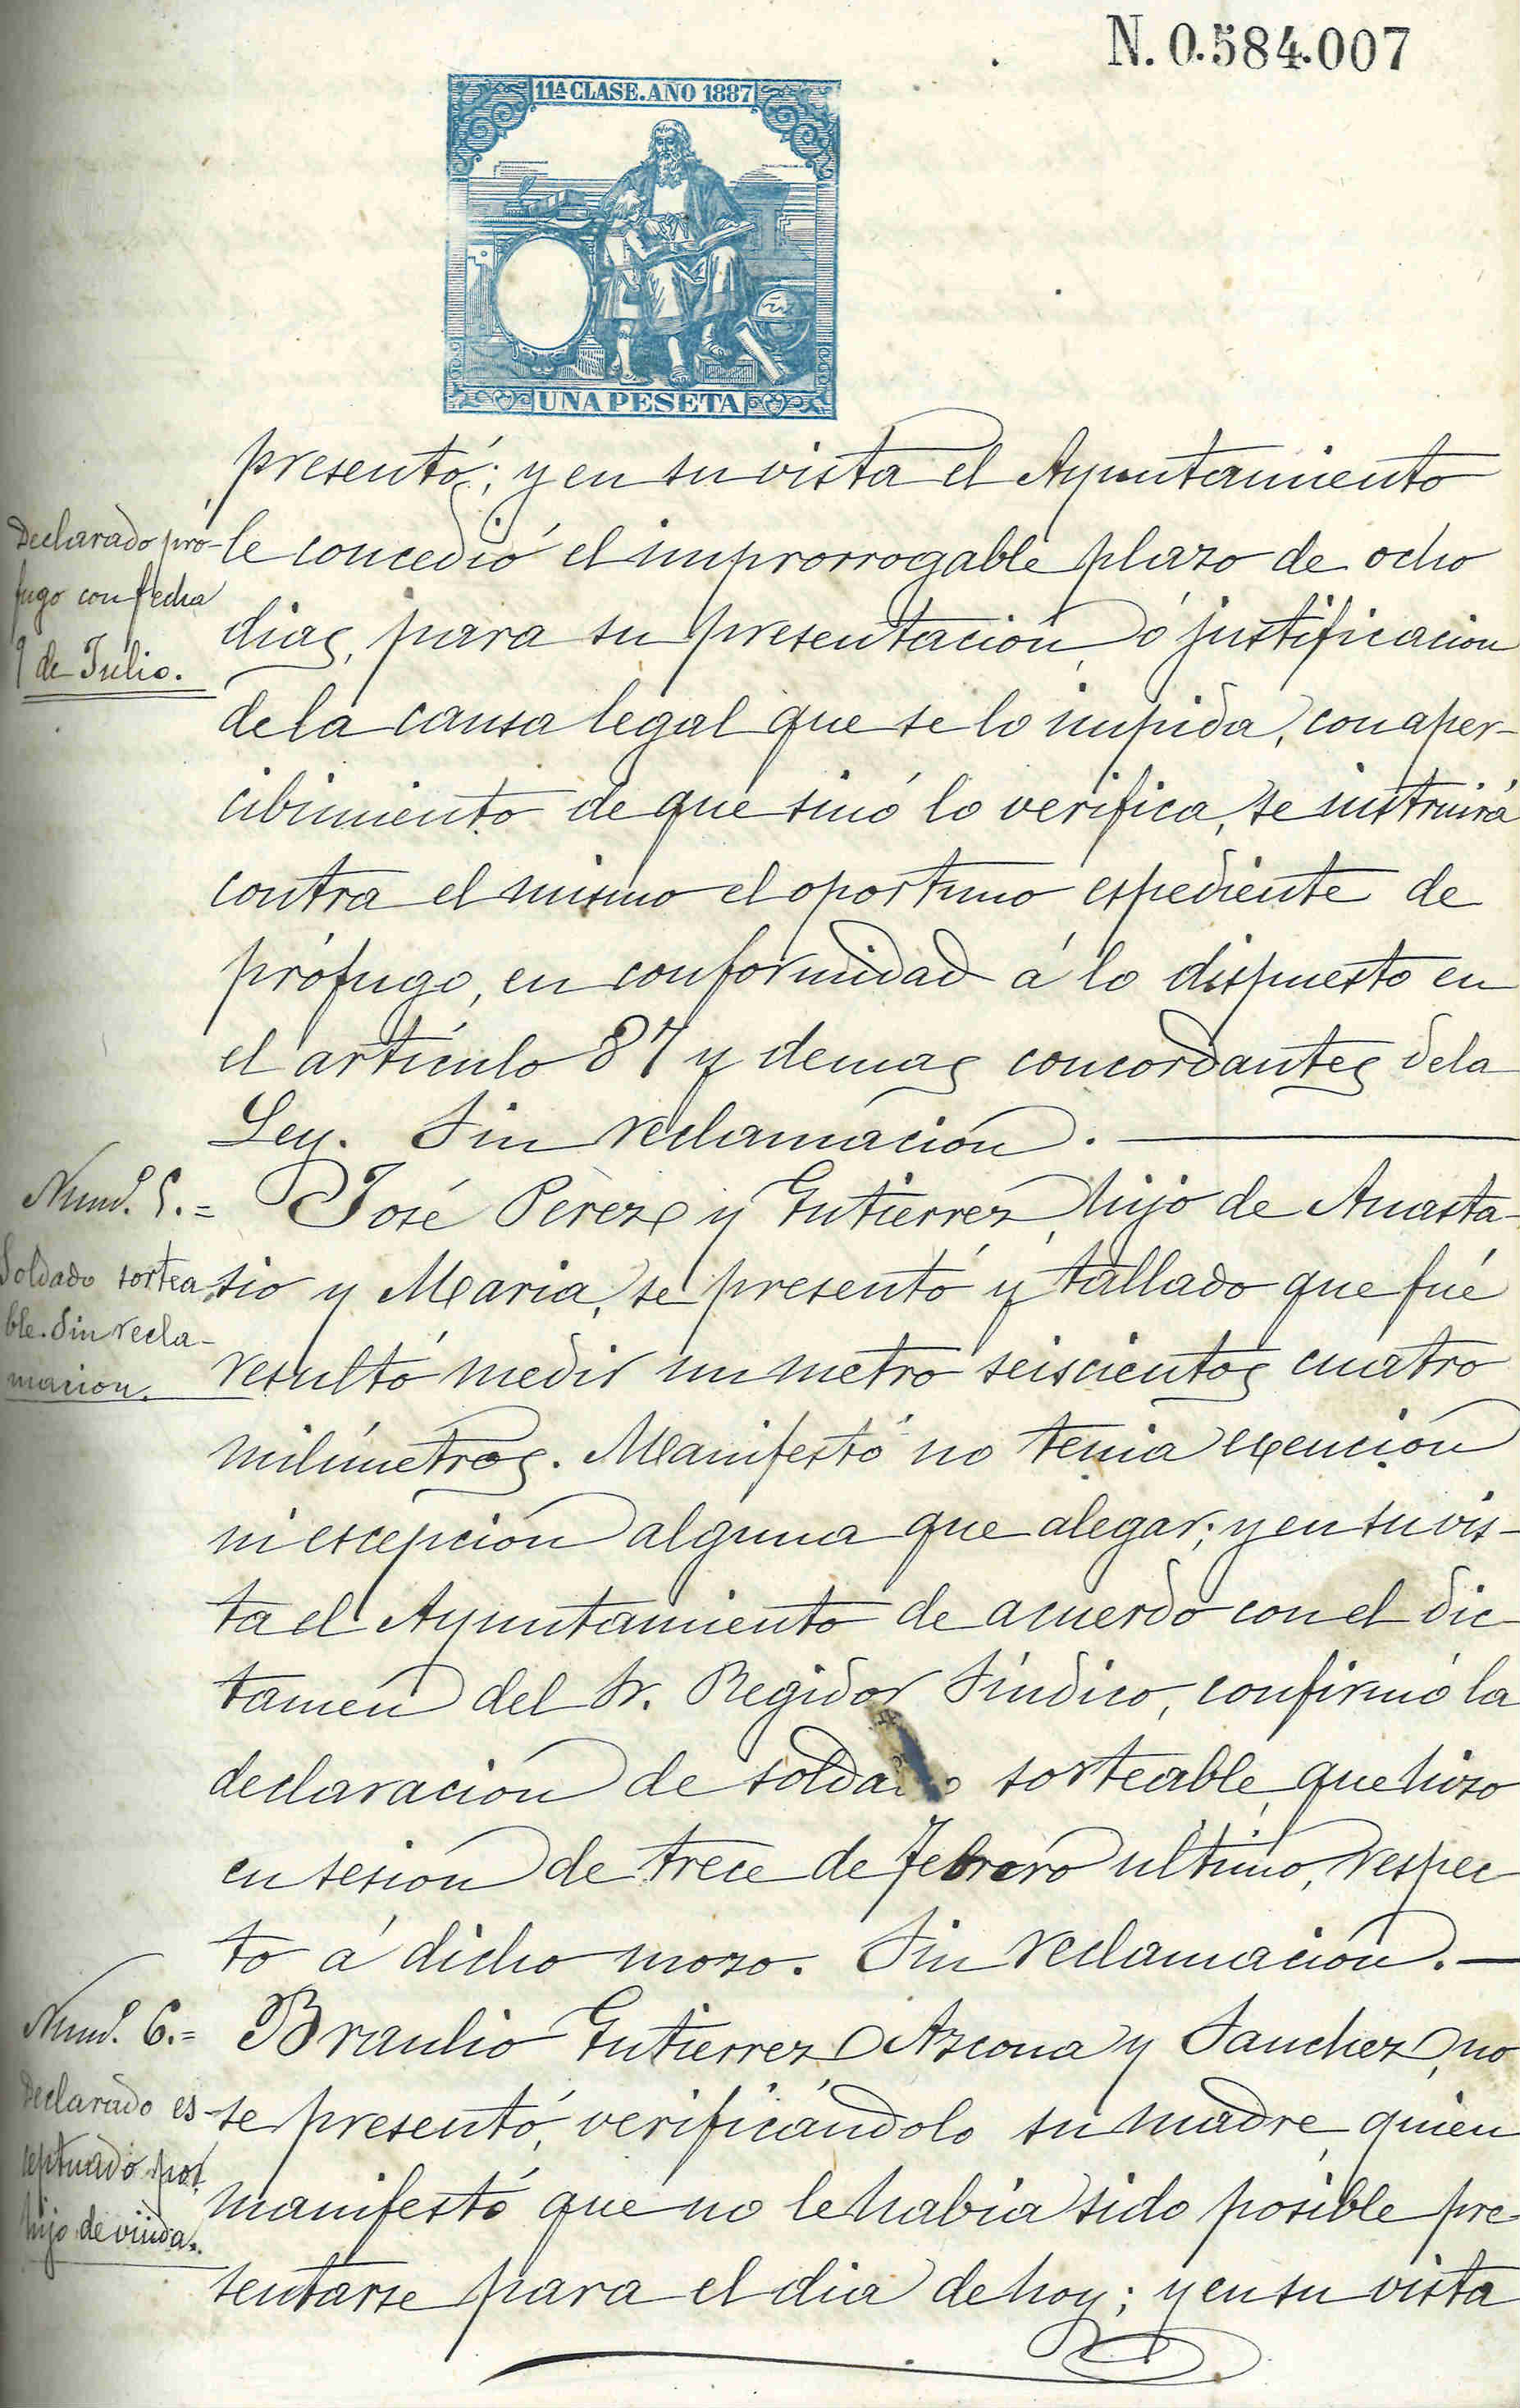 N. 0.584.007
11ª CLASE. AÑO 1887
UNA PESETA
presentó; y en su vista el Ayuntamiento
le concedió el improrrogable plazo de ocho
dias, para su presentación, ó justificacion
de la causa legal que se lo impida, con aper-
cibimiento de que sinó lo verifica, se instruirá
contra el mismo el oportuno espediente de
prófugo, en conformidad á lo dispuesto en
el artículo 87 y demas concordantes de la
Ley. Sin reclamación.
Declarado pró-
fugo con fecha
9 de Julio.
Num. 5.= José Pérez y Gutierrez, hijo de Anasta-
sio y Maria, se presentó y tallado que fué
resultó medir un metro seiscientos cuatro
milímetros. Manifestó no tenia exención
ni escepción alguna que alegar; y en su vis-
ta el Ayuntamiento de acuerdo con el dic-
tamen del Sr. Regidor Síndico, confirmó la
declaración de soldado sorteable, que hizo
en sesión de trece de Febrero ultimo, respec-
to á dicho mozo. Sin reclamación.
Soldado sortea-
ble. Sin recla-
macion.
Num. 6.= Braulio Gutierrez Azcona y Sanchez, no
se presentó, verificándolo su madre, quien
manifestó que no le habia sido posible pre-
sentarse para el dia de hoy; y en su vista
Declarado es-
ceptuado por
hijo de viuda.